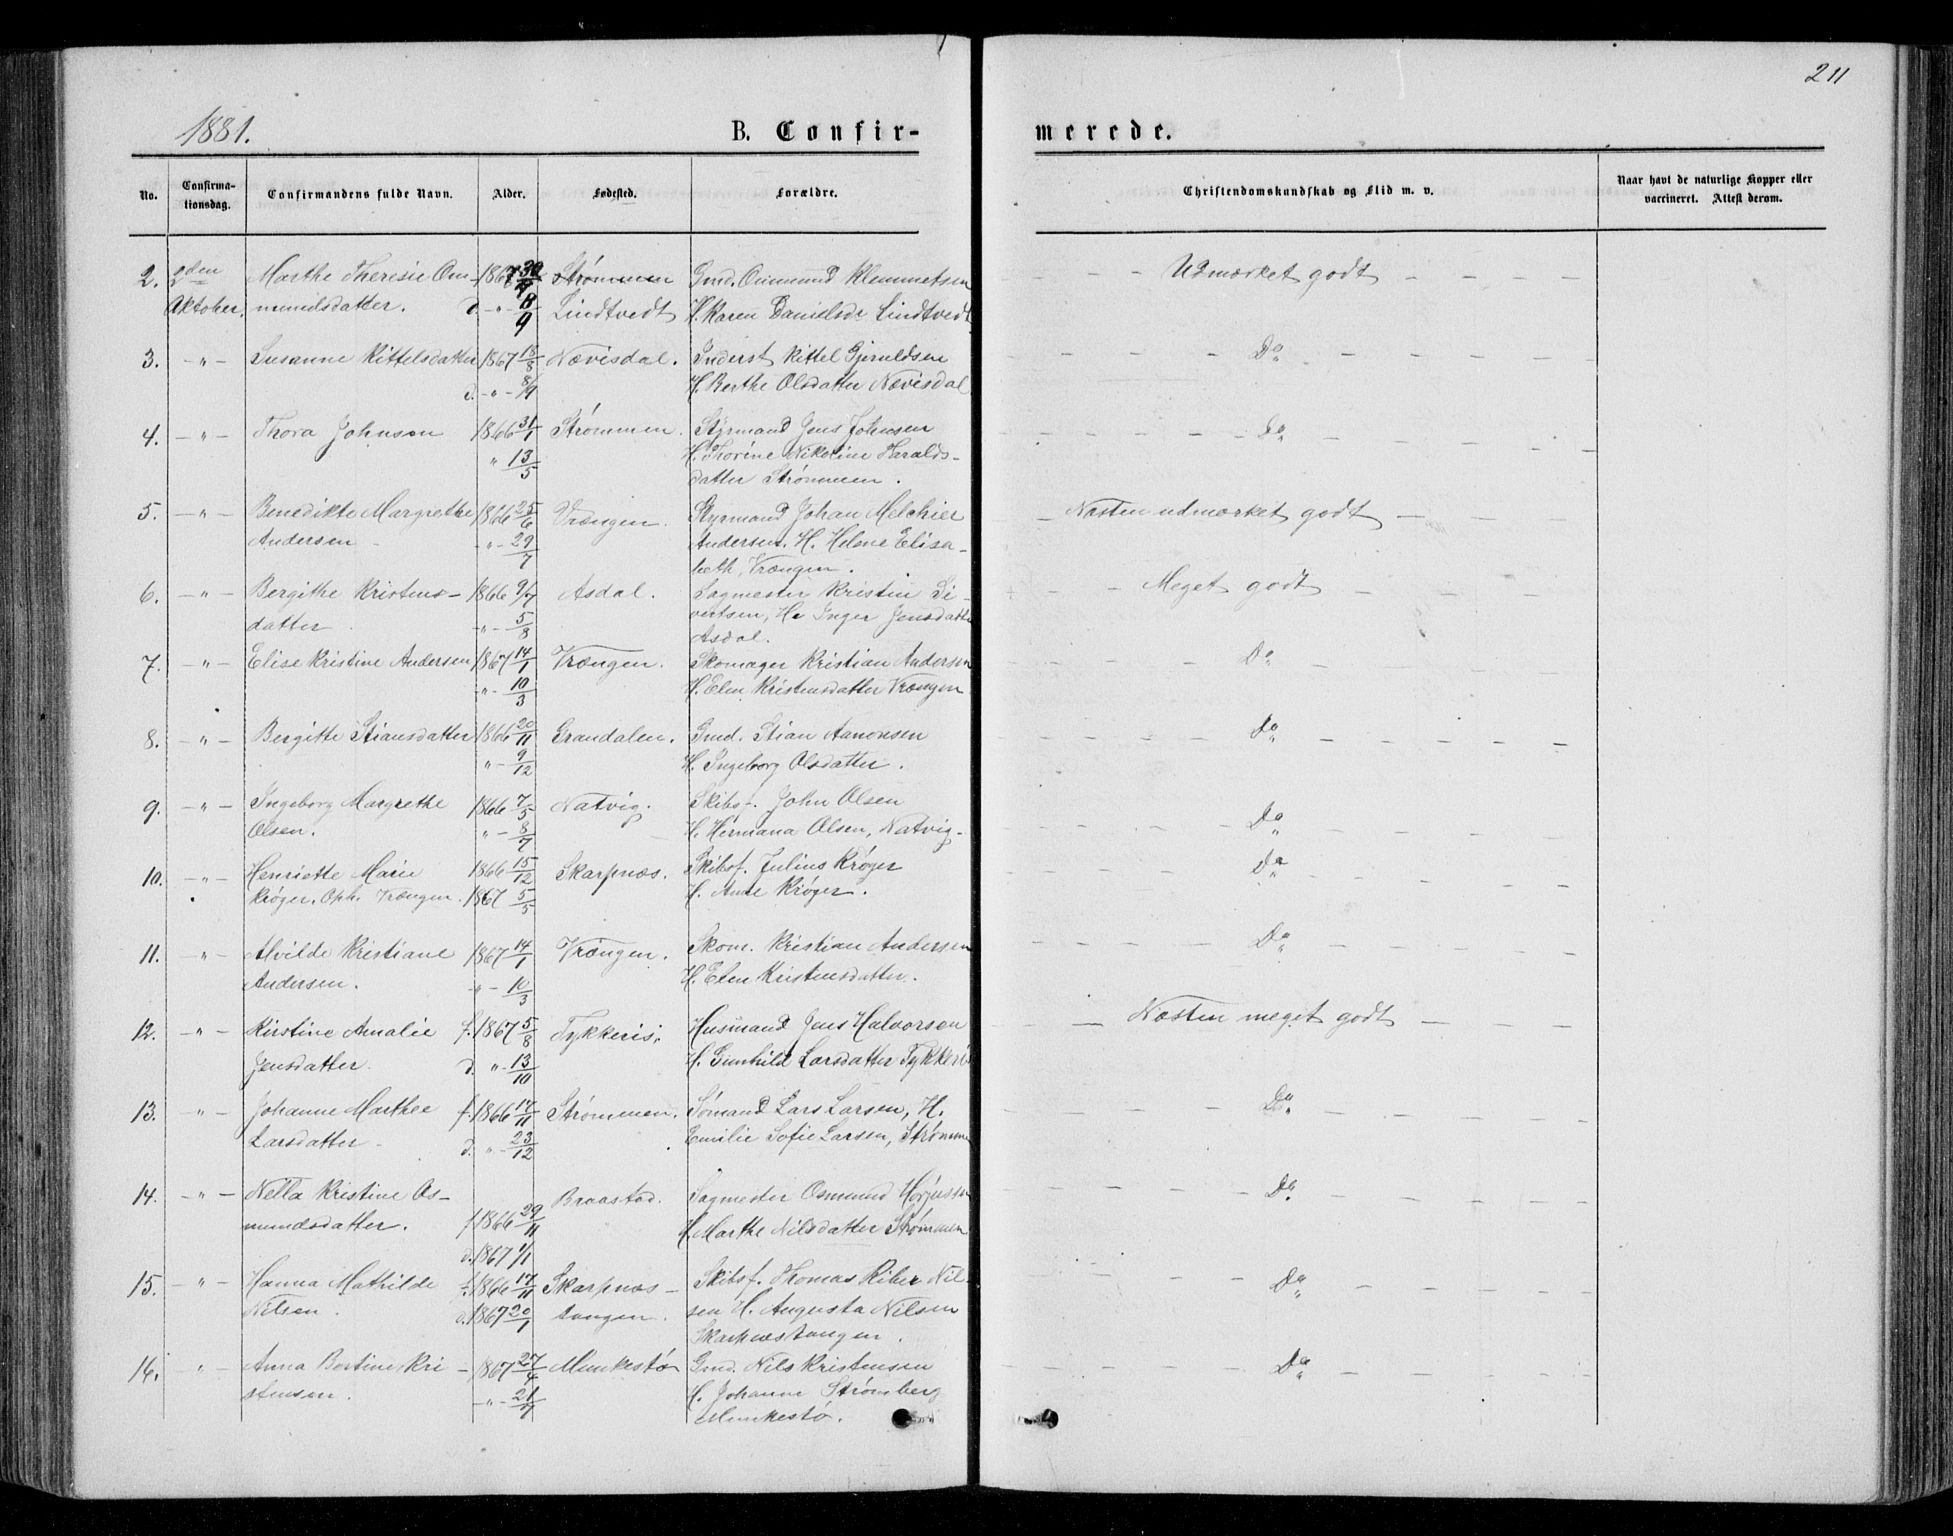 211
1881. B. Confir-merede.
No. Confirma-tionsdag. Confirmandens fulde Navn. Alder. Fødested. Forældre. Christendomskundskab og Flid m. v. Naar havt de naturlige Kopper eller vaccineret. Attest derom.
2. 2den Marthe Theresie Om- 1867 30/7 Strømmen Gmd. Ommund Klemmetsen - - - Udmærket godt - - - -
Oktober. mundsdatter. d. - " - 8/9 Lindtvedt H. Karen Danielsdr Lindtvedt
3. - " - Susanne Kittelsdatter 1867 15/8 Nævisdal. Inderst Kittel Gjeruldsen Do
d. - " - 8/9 H. Berthe Olsdatter Nævisdal
4. - " - Thora Johnsen 1866 31/1 Strømmen. Styrmand Jens Johnsen Do
" 13/5 H. Thorine Nikoline Haralds-
datter Strømmen.
5. - " - Benedikte Margrethe 1866 25/6 Vrængen. Styrmand Johan Melchier - Næsten udmærket godt -
Andersen - - " - 29/7 Andersen. H. Helene Elisa-
beth, Vrængen.
6. - " - Bergithe Kristens- 1866 9/7 Asdal. Sagmester Kristin Si- - Meget godt -
datter. - " - 5/8 vertsen, H. Inger Jensdatt
Asdal.
7. - " - Elise Kristine Andersen 1867 14/1 Vrængen. Skomager Kristian Andersen Do
- " - 10/3 H. Elen Kristensdatter Vrængen
8. - " - Bergitte Stiansdatter 1866 20/11 Grandalen. Gmd. Stian Aanonsen Do
" - 9/12 H. Ingeborg Olsdatter.
9. - " - Ingeborg Margrethe 1866 7/5 Natvig. Skibs-. John Olsen Do
Olsen. " - 8/7 H. Hermana Olsen, Natvig-
10. - " - Henriette Marie 1866 15/12 Skarpnæs. Skibsf. Julius Krøger Do
Krøger. Oph. Vrængen. 1867 5/5 H. Anne Krøger.
11. - " - Alvilde Kristiane 1867 14/1 Vrængen. Skom. Kristian Andersen Do
Andersen. - " - 10/3 H. Elen Kristensdatter.
12. - " - Kirstine Amalie f. 1867 5/8 Tykkeris. Husmand Jens Halvorsen - Næsten meget godt -
Jensdatter. d. " - 13/10 H. Gunhild Larsdatter Tykkeris
13. - " - Johanne Marthee f. 1866 17/11 Strømmen. Sømand Lars Larsen, H. Do
Larsdatter - d. " - 23/12 Emilie Sofie Larsen, Strømme
14. - " - Nella Kristine Os- Braastad. Sagmester Osmund Do
mundsdatter. f 1866 29/11 H. Marthe Nilsdatter Strømmen
d. 1867 1/1
15. - " - Hanna Mathilde f. 1866 17/11 Skarpnæs- Skibsf. Thomas Riber Nil- Do
Nilsen. d. 1867 20/1 tangen. sen H. Augusta Nilsen
Skarpnæstangen.
16. " - Anna Bertine Kri- 1867 27/4 Munkestø Gmd. Nils Kristensen Do
stensen. - " - 21/7 H. Johanne Strømberg
Munkestø.